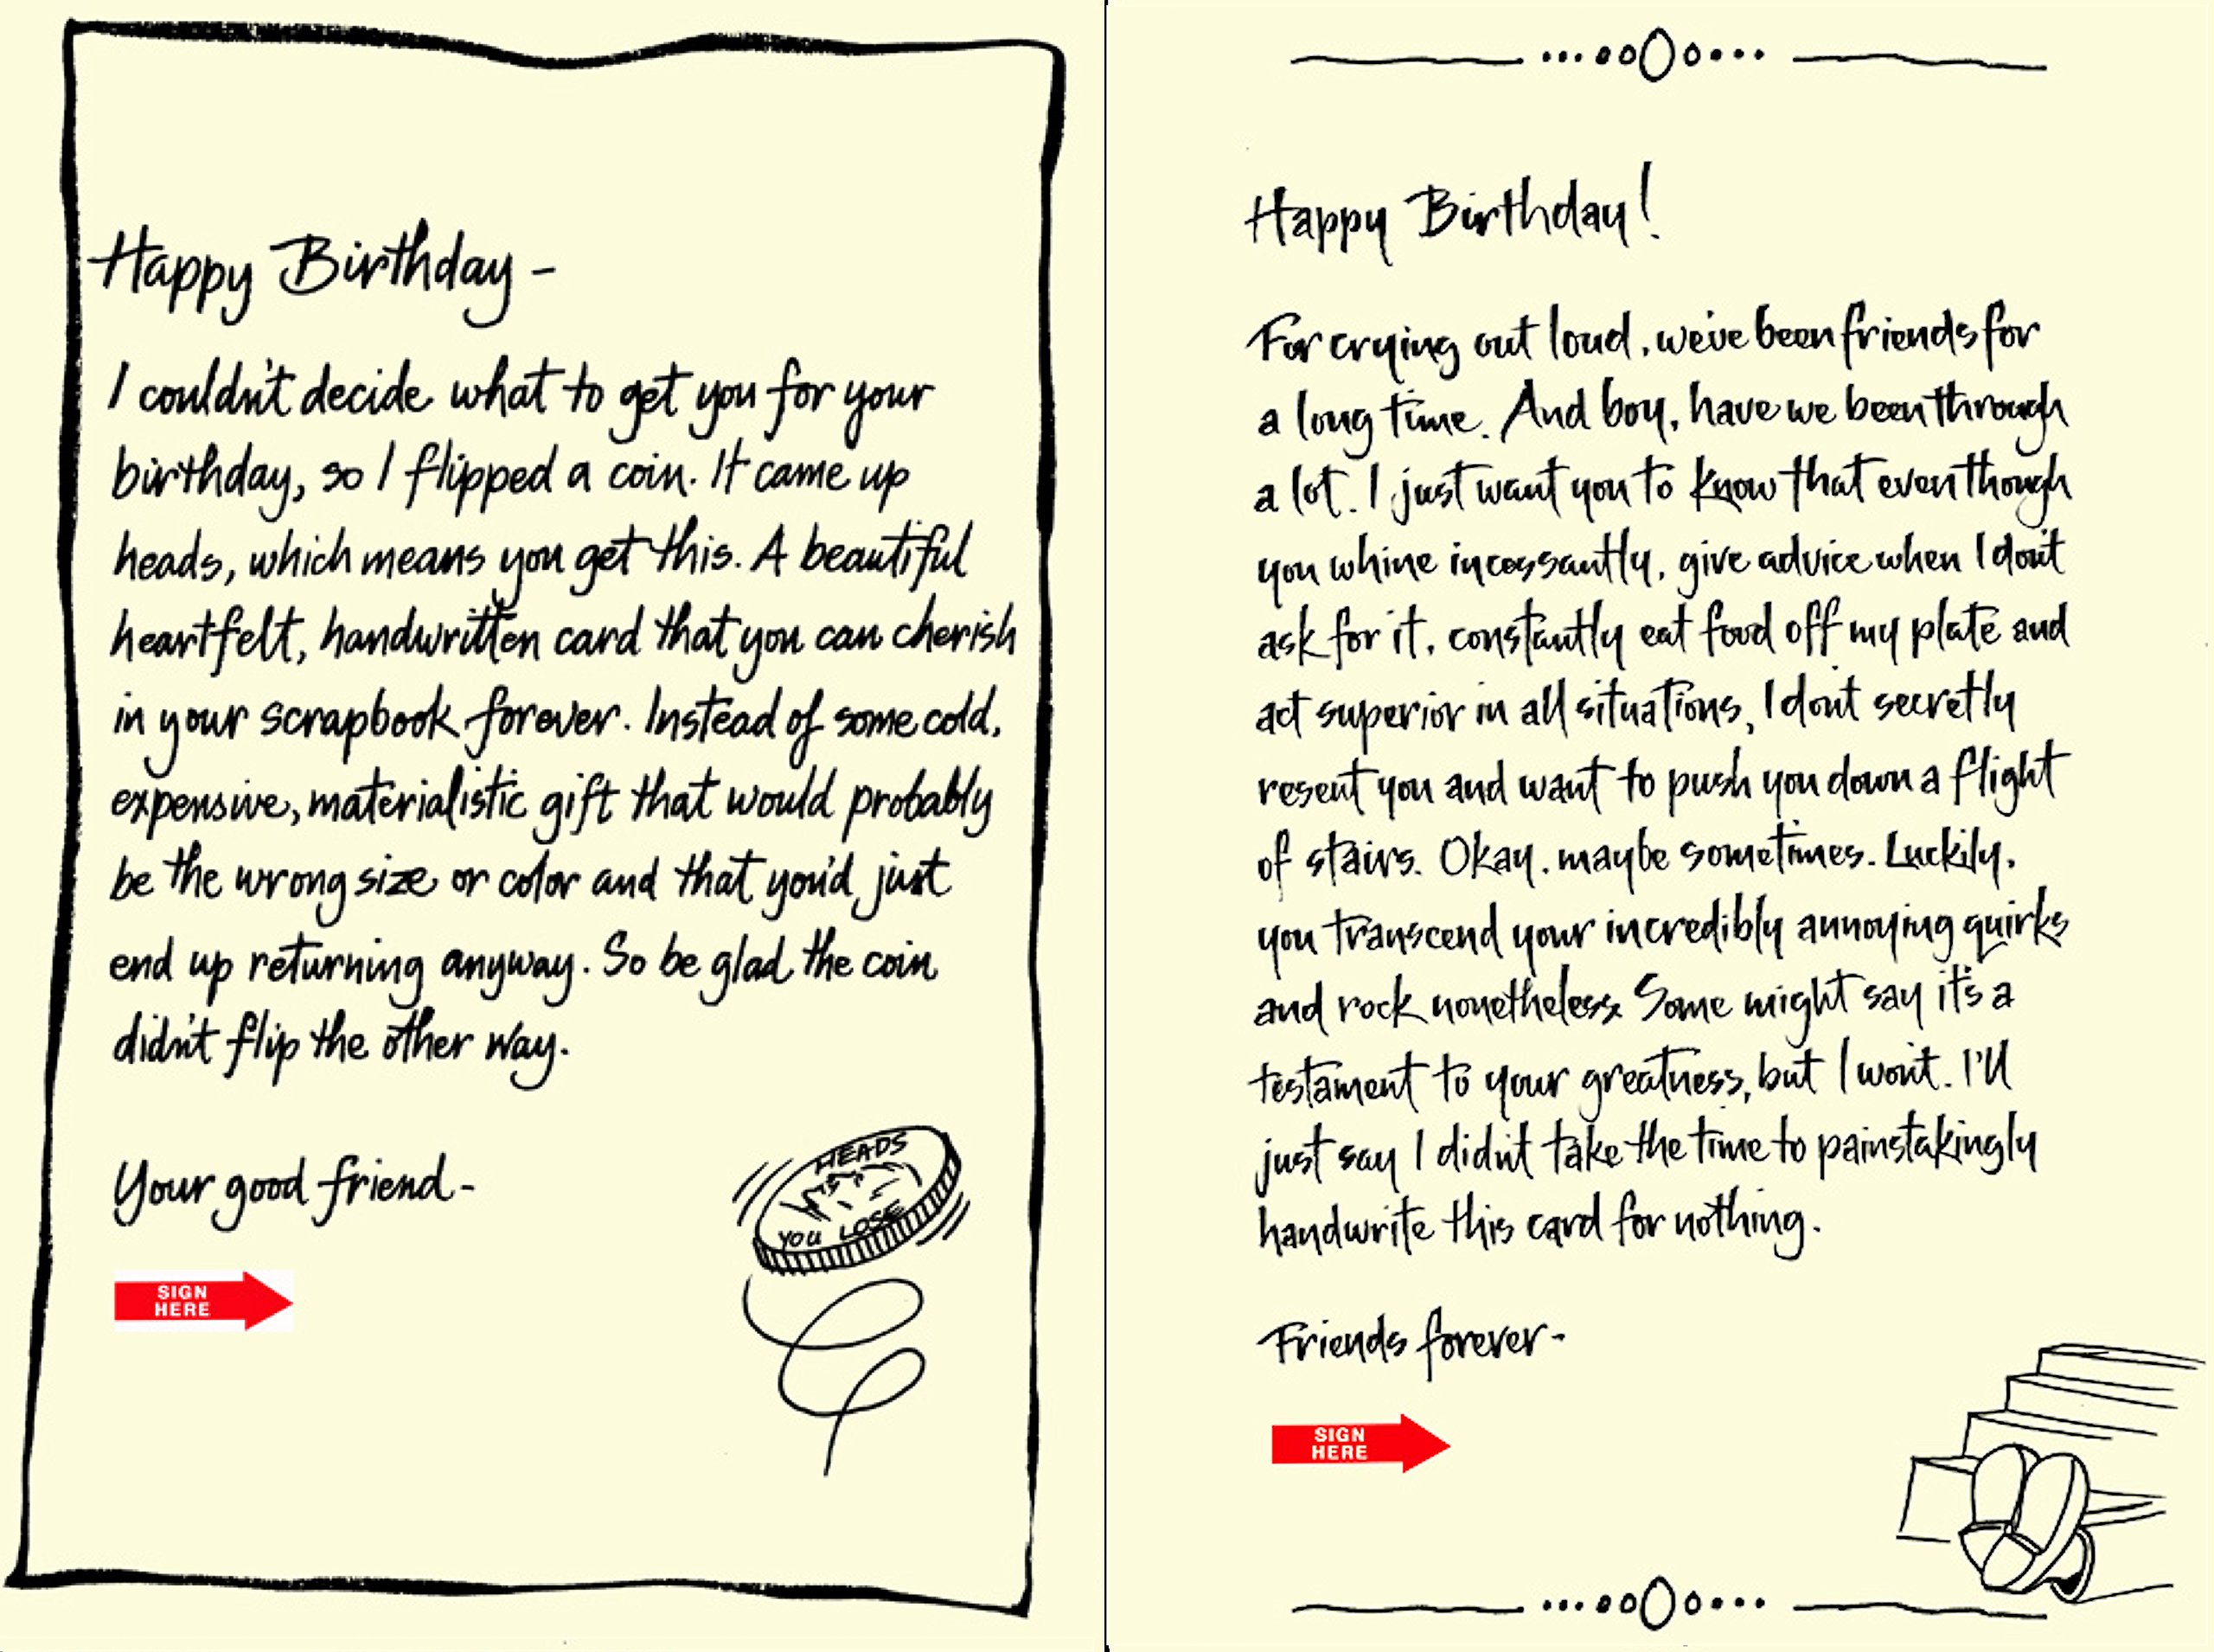 Happy Birthday -
I couldn't decide what to get you for your
birthday, so I flipped a coin. It came up
heads, which means you get this. A beautiful
heartfelt, handwritten card that you can cherish
in your scrapbook forever. Instead of some cold,
expensive, materialistic gift that would probably
be the wrong size or color and that you'd just
end up returning anyway. So be glad the coin
didn't flip the other way.
Your good friend -
HEADS
YOU LOSE
SIGN
HERE
Happy Birthday!
For crying out loud, we've been friends for
a long time. And boy, have we been through
a lot. I just want you to know that even though
you whine incessantly, give advice when I don't
ask for it, constantly eat food off my plate and
act superior in all situations, I don't secretly
resent you and want to push you down a flight
of stairs. Okay, maybe sometimes. Luckily,
you transcend your incredibly annoying quirks
and rock nonetheless. Some might say it's a
testament to your greatness, but I won't. I'll
just say I didn't take the time to painstakingly
handwrite this card for nothing.
Friends forever -
SIGN
HERE